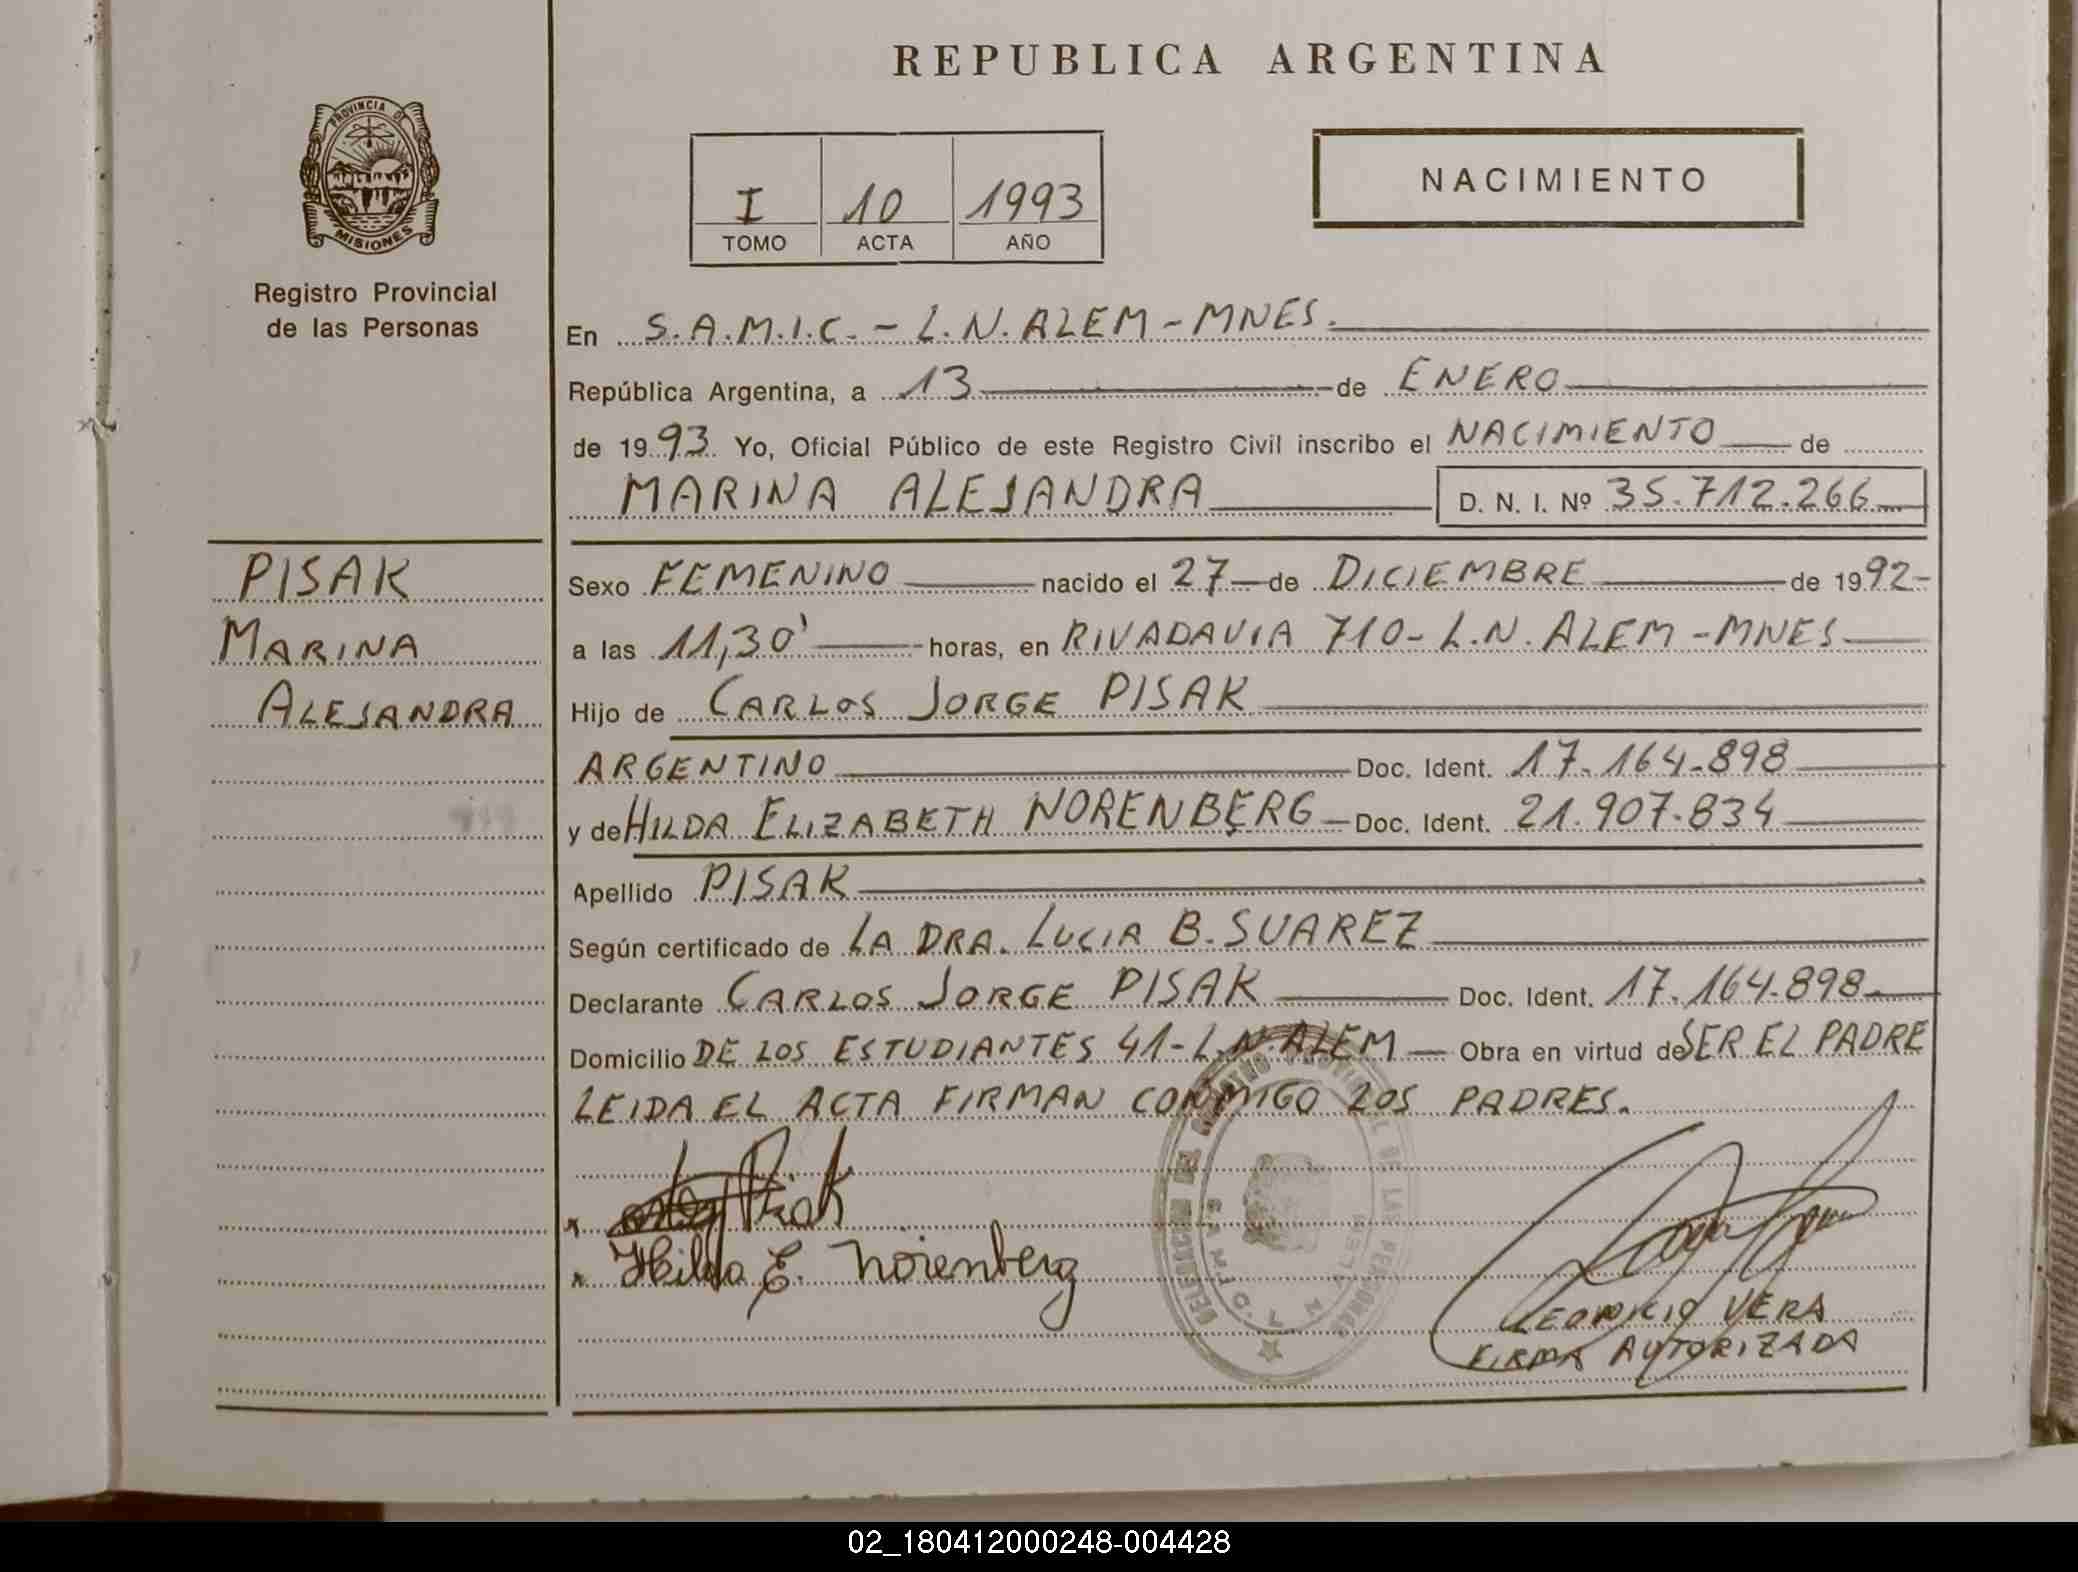 REPUBLICA ARGENTINA
PROVINCIA DE
MISIONES
Registro Provincial
de las Personas
I 10 1993
TOMO ACTA AÑO
NACIMIENTO
En S.A.M.I.C. - L.N. ALEM - MNES.
República Argentina, a 13 de ENERO
de 1993. Yo, Oficial Público de este Registro Civil inscribo el NACIMIENTO de
MARINA ALEJANDRA D. N. I. Nº 35.712.266
PISAK
MARINA
ALEJANDRA
Sexo FEMENINO nacido el 27 de DICIEMBRE de 1992-
a las 11,30' horas, en RIVADAVIA 710 - L.N. ALEM - MNES
Hijo de CARLOS JORGE PISAK
ARGENTINO Doc. Ident. 17.164.898
y de HILDA ELIZABETH NORENBERG Doc. Ident. 21.907.834
Apellido PISAK
Según certificado de LA DRA. LUCIA B. SUAREZ
Declarante CARLOS JORGE PISAK Doc. Ident. 17.164.898
Domicilio DE LOS ESTUDIANTES 41 - L.N. ALEM Obra en virtud de SER EL PADRE
LEIDA EL ACTA FIRMAN CONMIGO LOS PADRES.
Pisak
Hilda E. Norenberg
VERA
FIRMA AUTORIZADA
02_180412000248-004428